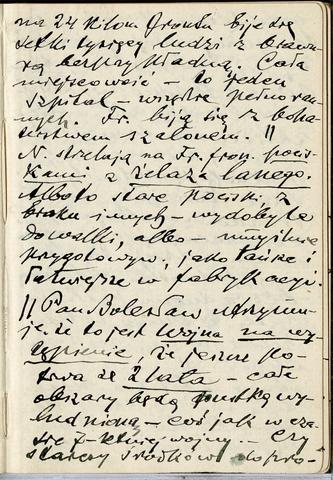 na 24 kilom frontu bije się
setki tysięcy ludzi z brawu-
rą bezprzykładną. Cała
miejscowość – to jeden
szpital – wszędzie pełno ran-
nych. Fr. biją się z boha-
terstwem szalonem. ||
N. strzelają na Fr. fron. pocis-
kami z żelaza lanego.
Albo to stare pociski, z
braku innych – wydobyte
do walki, albo – umyślnie
przygotowyw. jako tańsze i
łatwiejsze w fabrykacyi.
|| Pan Bolesław utrzymu-
je, że to jest wojna na wy-
tępienie, że jeszcze po-
trwa ze 2 lata – całe
obszary będą pustką wy-
ludnioną – coś jak w cza-
sie 7-letniej wojny. – Czy
starczy środków do pro-